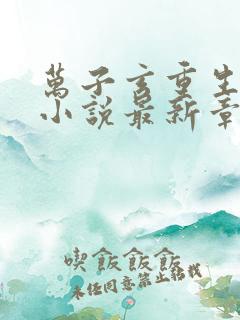 萬子言重生
小說最新章
喫飯飯飯
未經同意禁止轉載